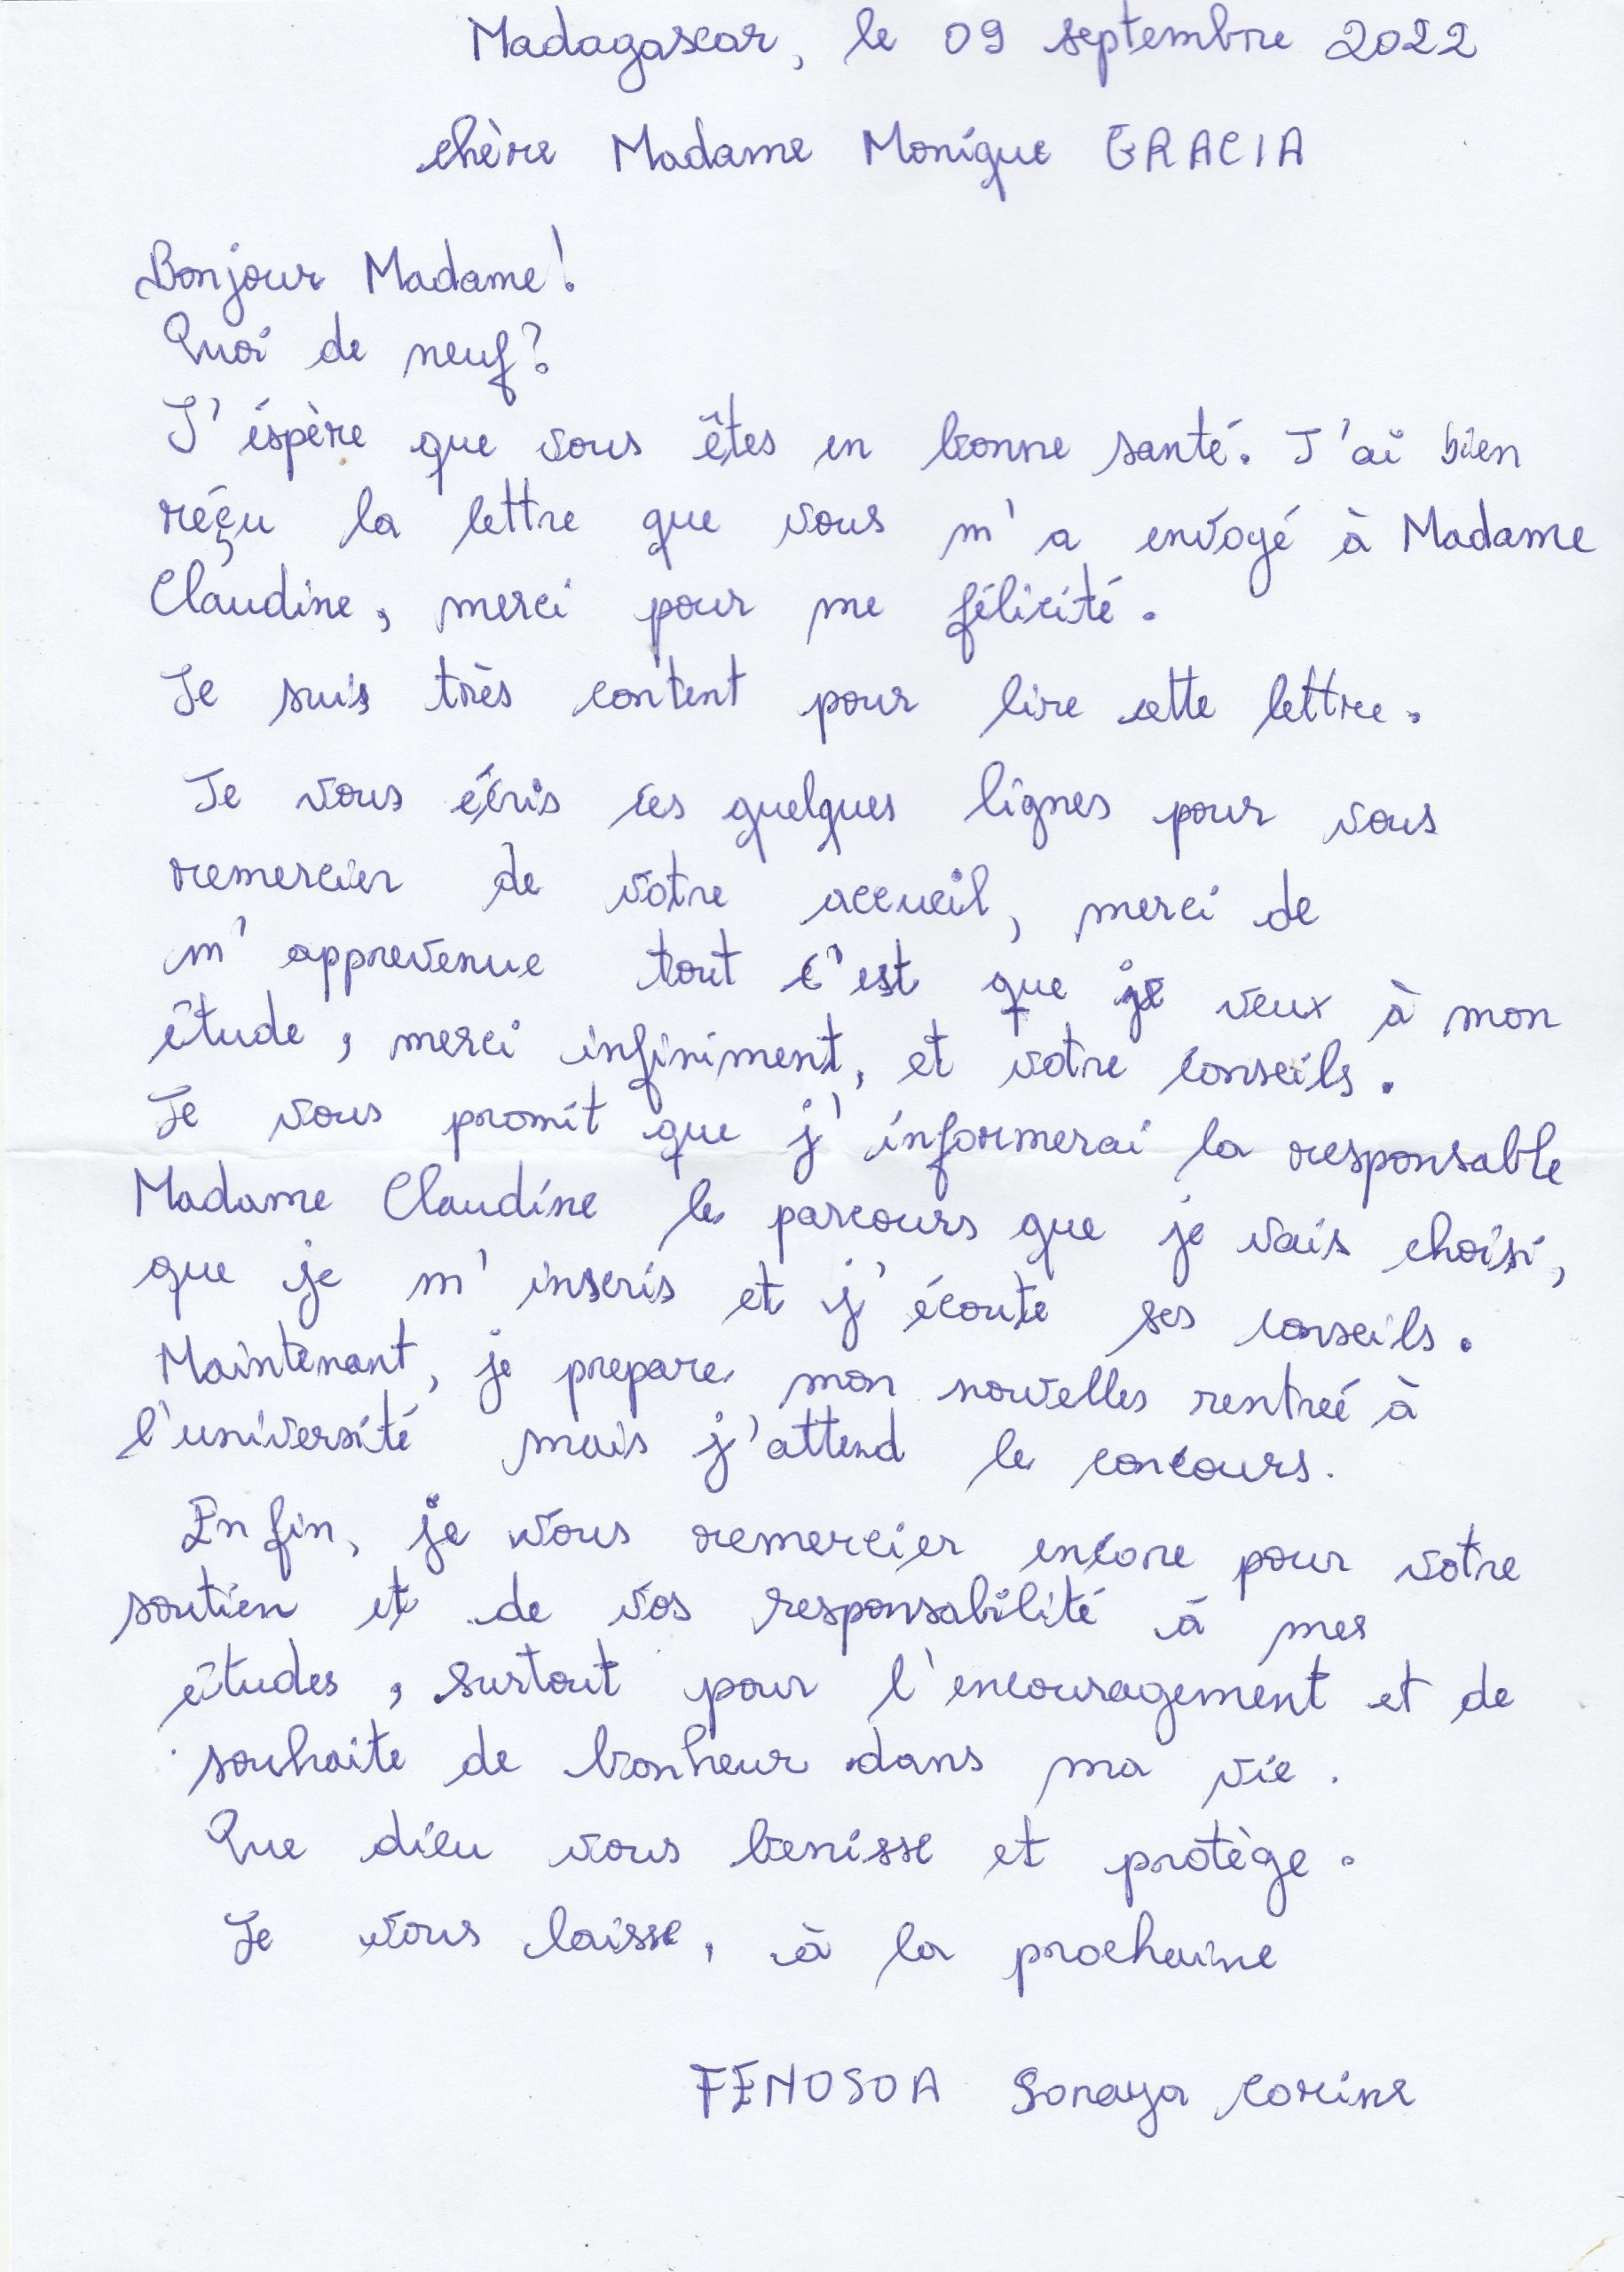 Madagascar, le 09 septembre 2022
chère Madame Monique GRACIA
Bonjour Madame!
Quoi de neuf?
J'éspère que vous êtes en bonne santé. J'ai bien
réçu la lettre que vous m'a envoyé à Madame
Claudine, merci pour me félicité.
Je suis très content pour lire cette lettre.
Je vous écris ces quelques lignes pour vous
remercier de votre accueil, merci de
m'apprevenue tout c'est que je veux à mon
étude, merci infiniment, et votre conseils.
Je vous promit que j'informerai la responsable
Madame Claudine le parcours que je vais choisi,
que je m'inscris et j'écoute ses conseils.
Maintenant, je prepare mon nouvelles rentreé à
l'université mais j'attend le concours.
Enfin, je vous remercier encore pour votre
soutien et de vos responsabilité à mes
études, surtout pour l'encouragement et de
souhaite de bonheur dans ma vie.
Que dieu vous benisse et protège.
Je vous laisse, à la prochaine
FENOSOA Soraya Corine